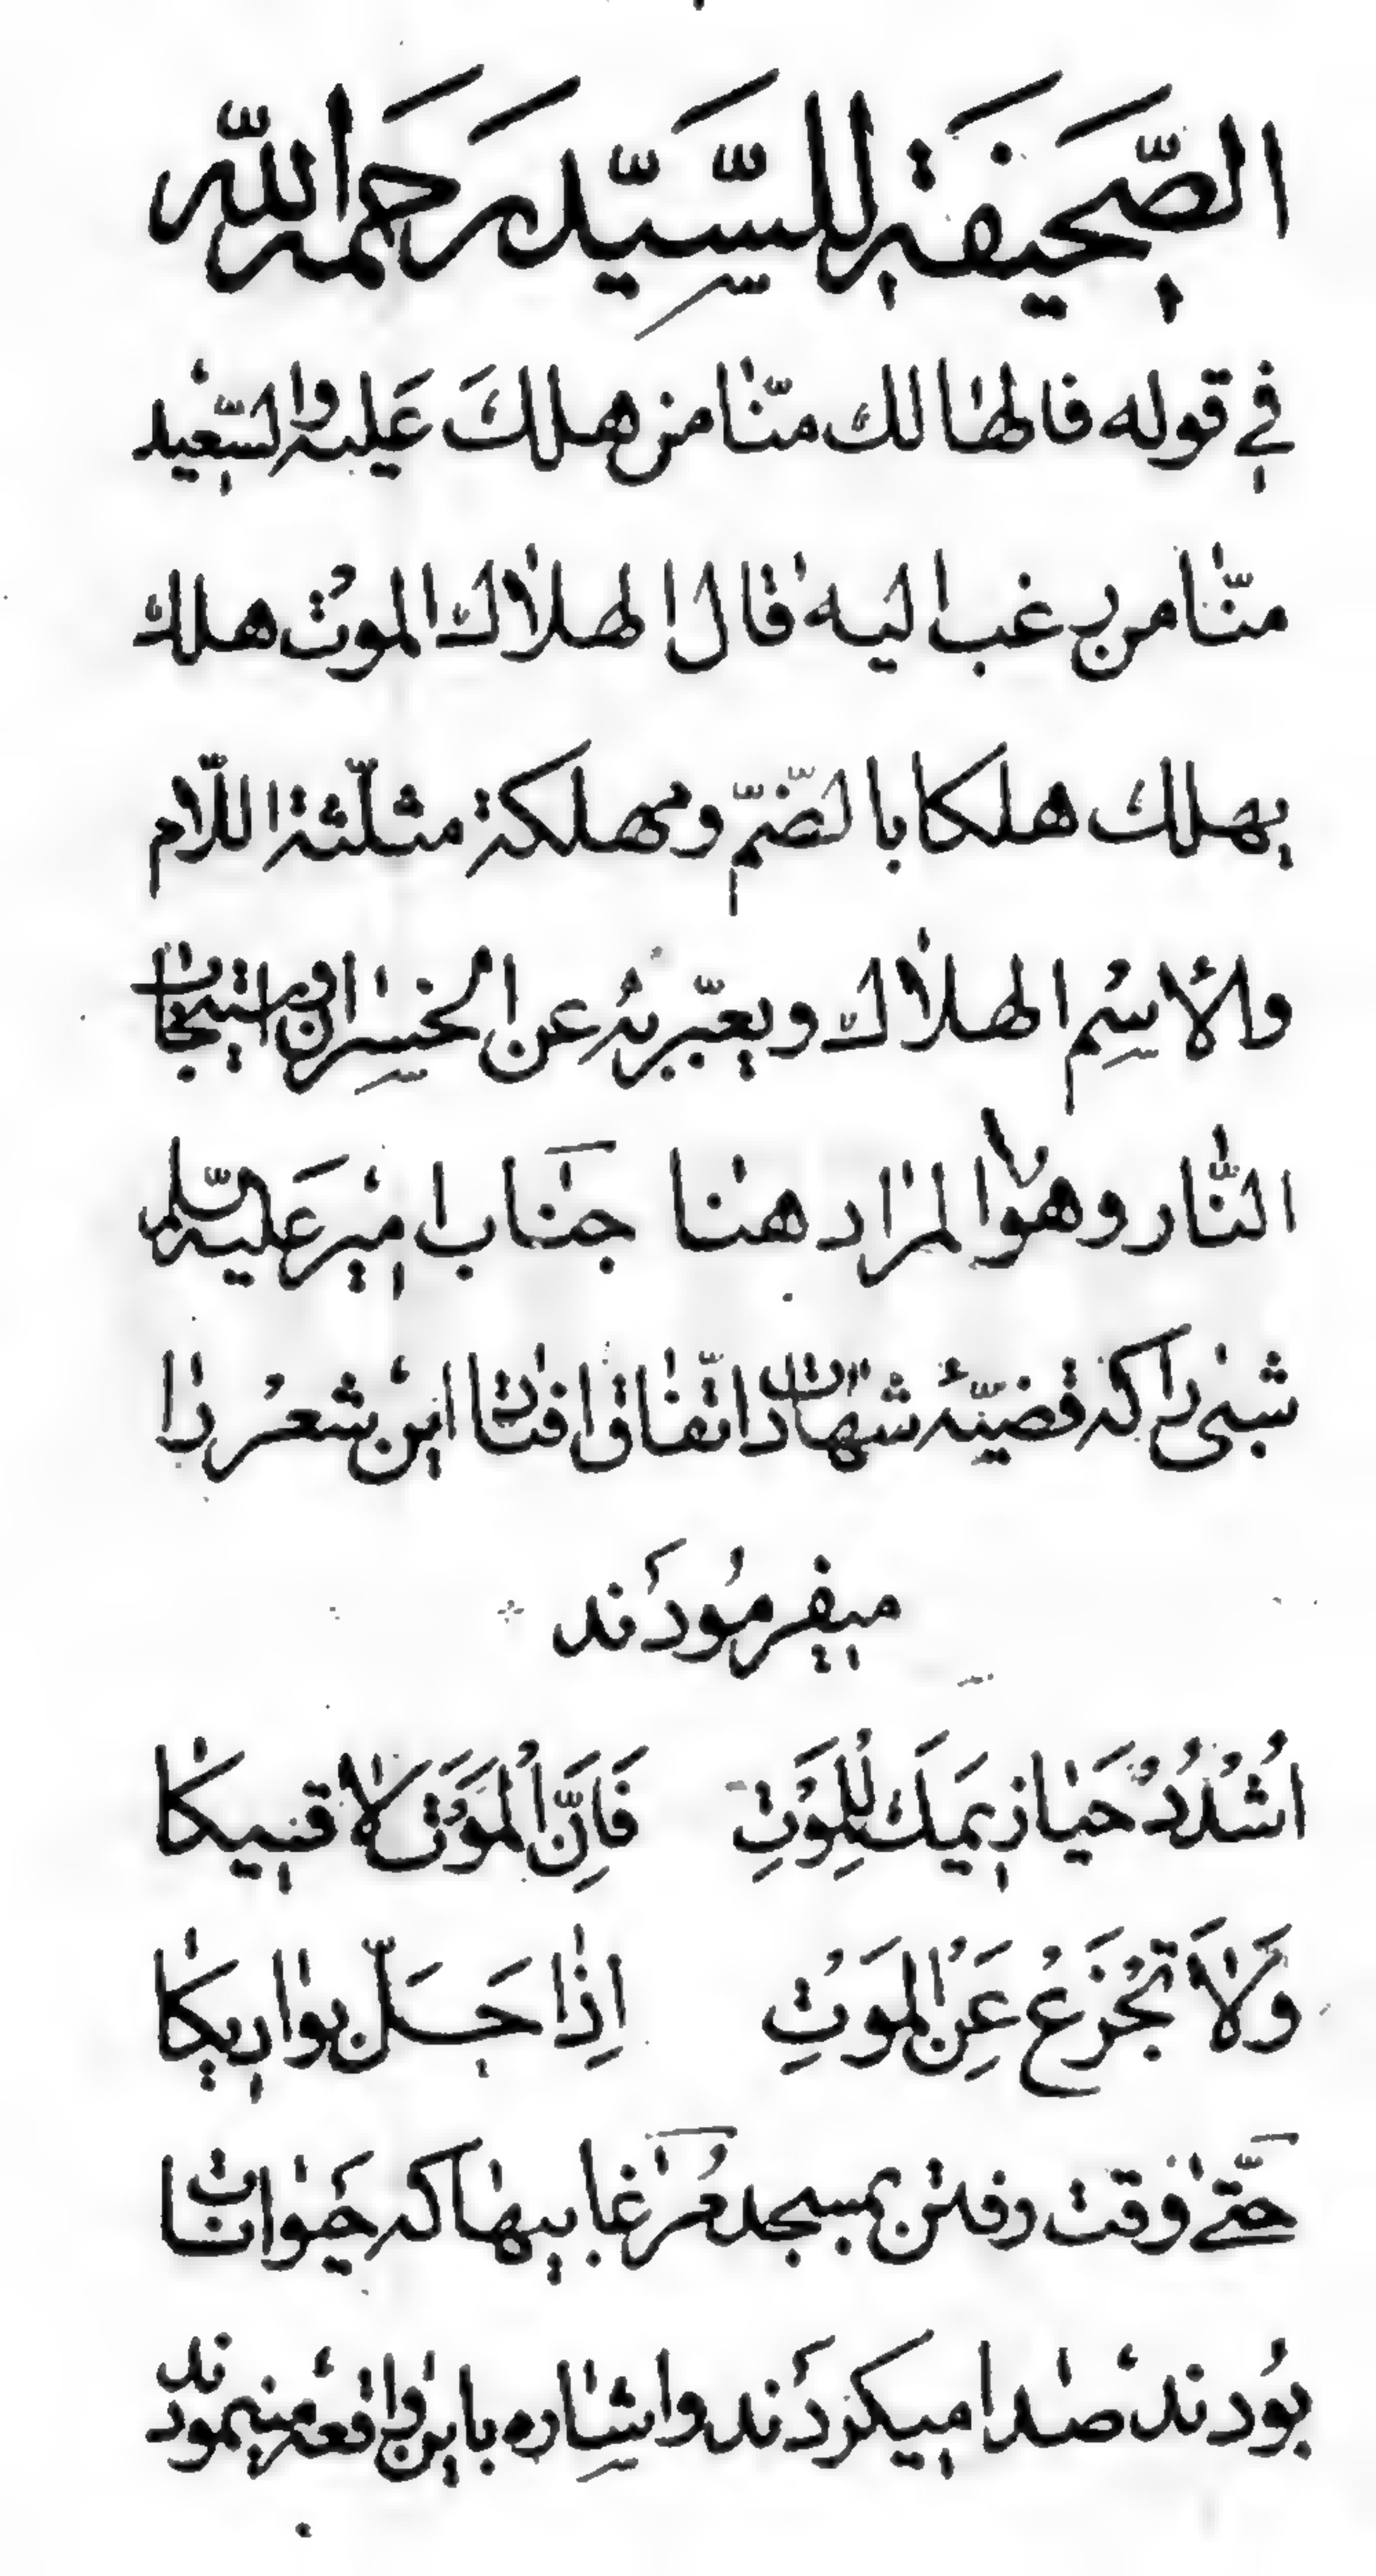 الصَّحیفَة للسَّیِّد رَحمه اللّه
في قوله فالهالك منّا من هلكَ عَلیه والسّعید
منّا من رغب الیه قال الهلاك الموت هلك
یهلك هلکا بالضّمّ ومهلکة مثلّثة اللّام
والأسِم الهلاك ویعبّر به عن الخسِران واستیجاب
النّار وهو المراد هنا جناب امیر عَلیه السّلم
شبی را که قضیّهٔ شهادت اتّفاق افتاد این شعر را
میفرمُودَند
اُشْدُدْ حَیازیمَكَ لِلمَوْتِ فَاِنَّ الْمَوْتَ لاقیکا
وَلاَ تَجْزَعْ عَنِ الْمَوْتِ اِذا حَلّ بوادیکا
حَتّی وقت رفتن بمسجد مُرغابیها که حَیوانات
بُودند صدا میکردَند واشِاره باین واقعه مینمودند